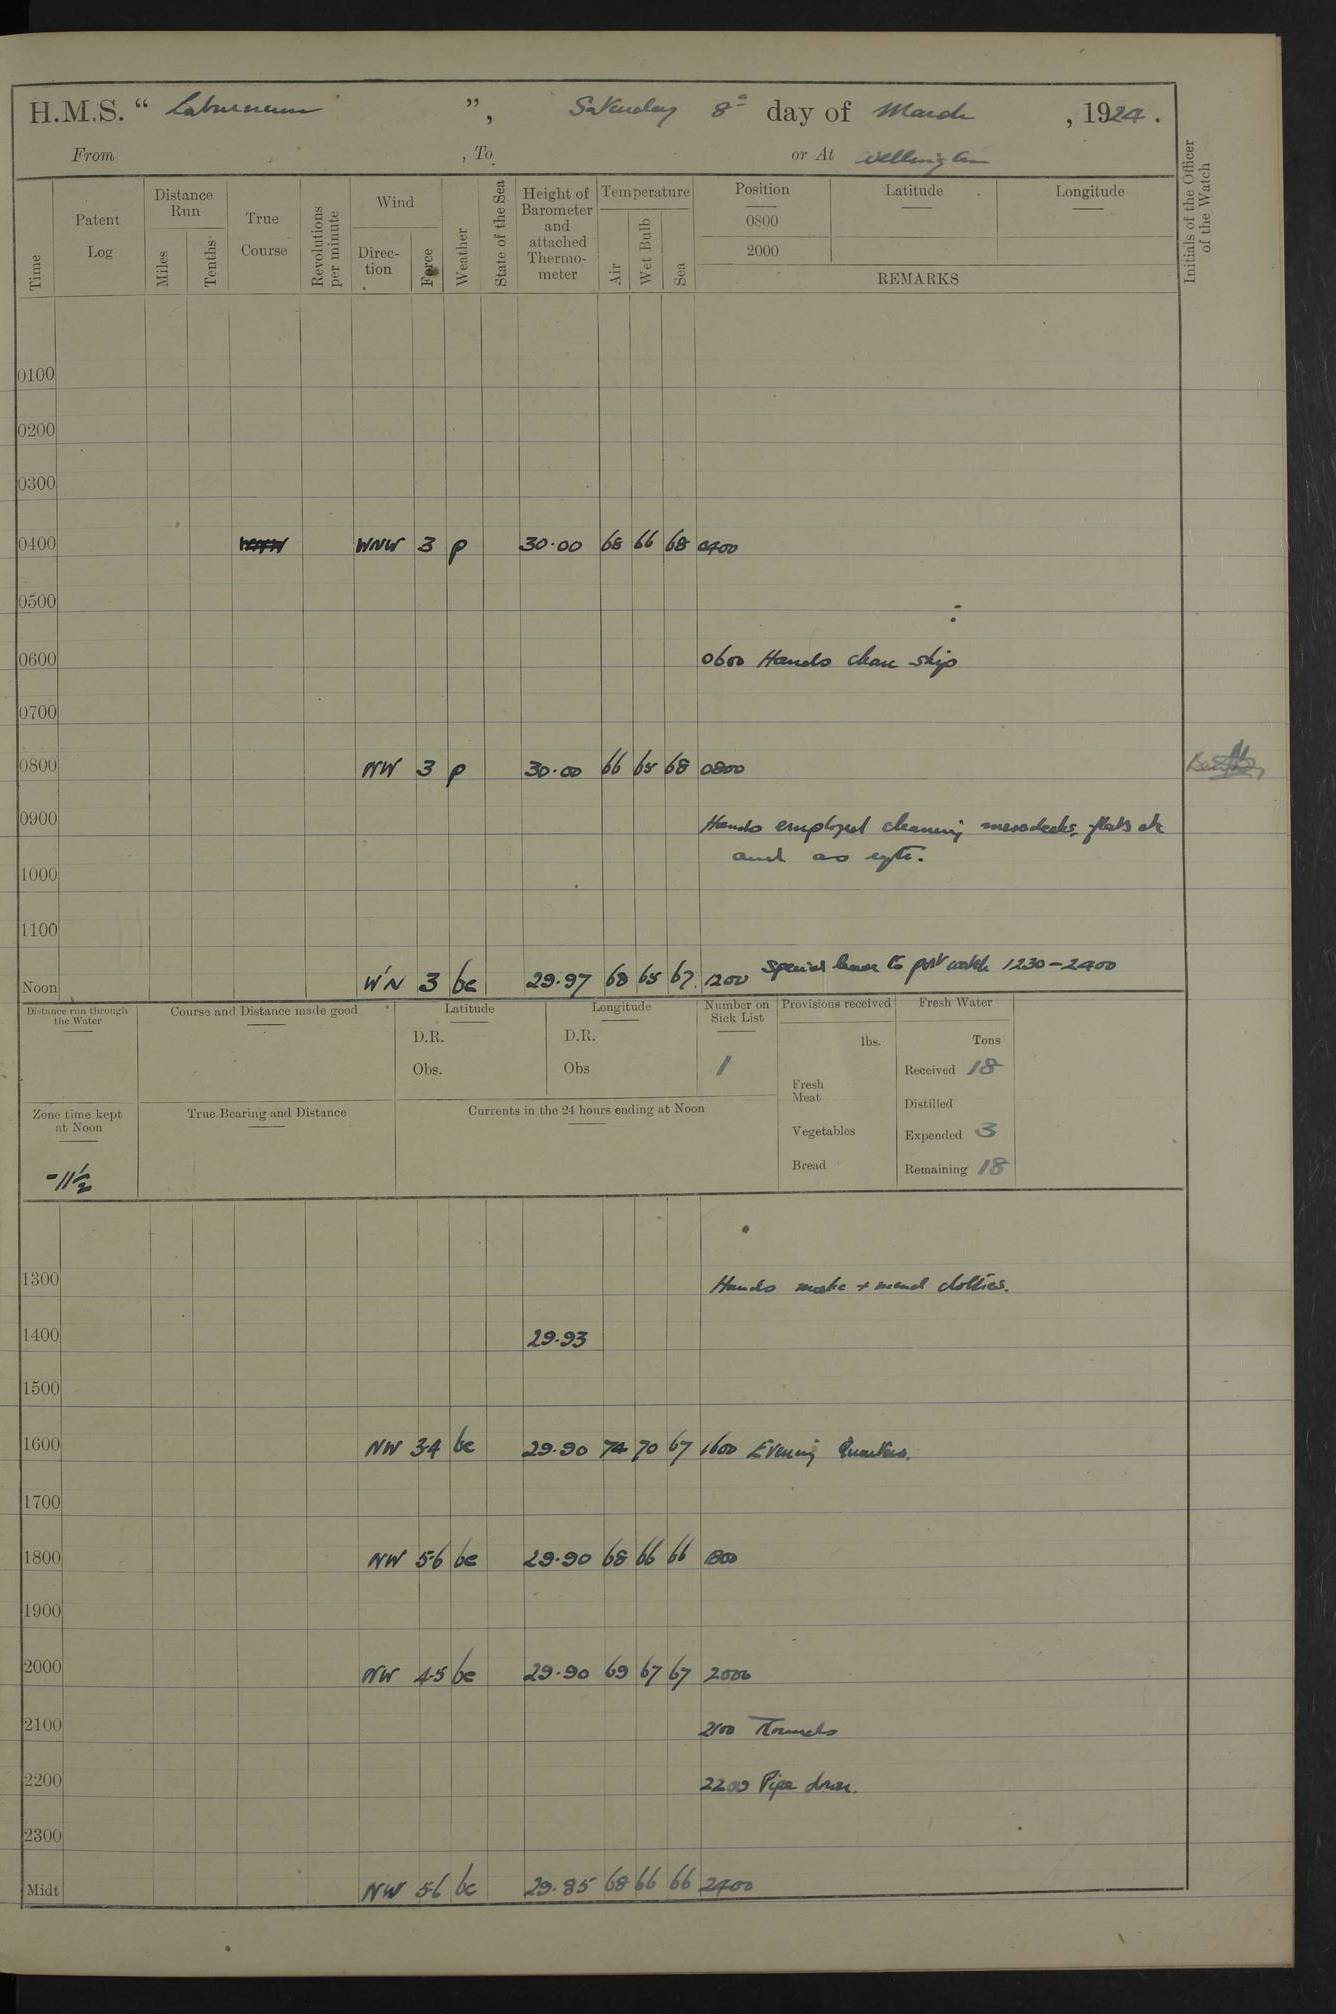 H.M.S. “ Laburnum ”, Saturday 8th day of March , 1924.
From , To or At Wellington
Time
Patent Log
Distance Run
Miles
Tenths
True Course
Revolutions per minute
Wind
Direc-tion
Force
Weather
State of the Sea
Height of Barometer and attached Thermo-meter
Temperature
Air
Wet Bulb
Sea
Position Latitude Longitude
0800
2000
REMARKS
Initials of the Officer of the Watch
0100
0200
0300
0400 WNW 3 p 30.00 68 66 68 0400
0500
0600 0600 Hands clean ship
0700
0800 NW 3 p 30.00 66 65 68 0800
0900 Hands employed cleaning messdecks, flats etc
and as reqte.
1000
1100
Noon W'N 3 bc 29.97 68 65 67 1200 Special leave to port watch 1230-2400
Distance run through the Water
Course and Distance made good
Latitude
D.R.
Obs.
Longitude
D.R.
Obs
Number on Sick List
1
Provisions received
lbs.
Fresh Meat
Vegetables
Bread
Fresh Water
Tons
Received 18
Distilled
Expended 3
Remaining 18
Zone time kept at Noon
-11½
True Bearing and Distance
Currents in the 24 hours ending at Noon
1300 Hands make + mend clothes.
1400 29.93
1500
1600 NW 3-4 bc 29.90 74 70 67 1600 Evening Quarters.
1700
1800 NW 5-6 bc 29.90 68 66 66 1800
1900
2000 NW 4-5 bc 29.90 69 67 67 2000
2100 2100 Rounds
2200 2200 Pipe down.
2300
Midt NW 5-6 bc 29.85 68 66 66 2400